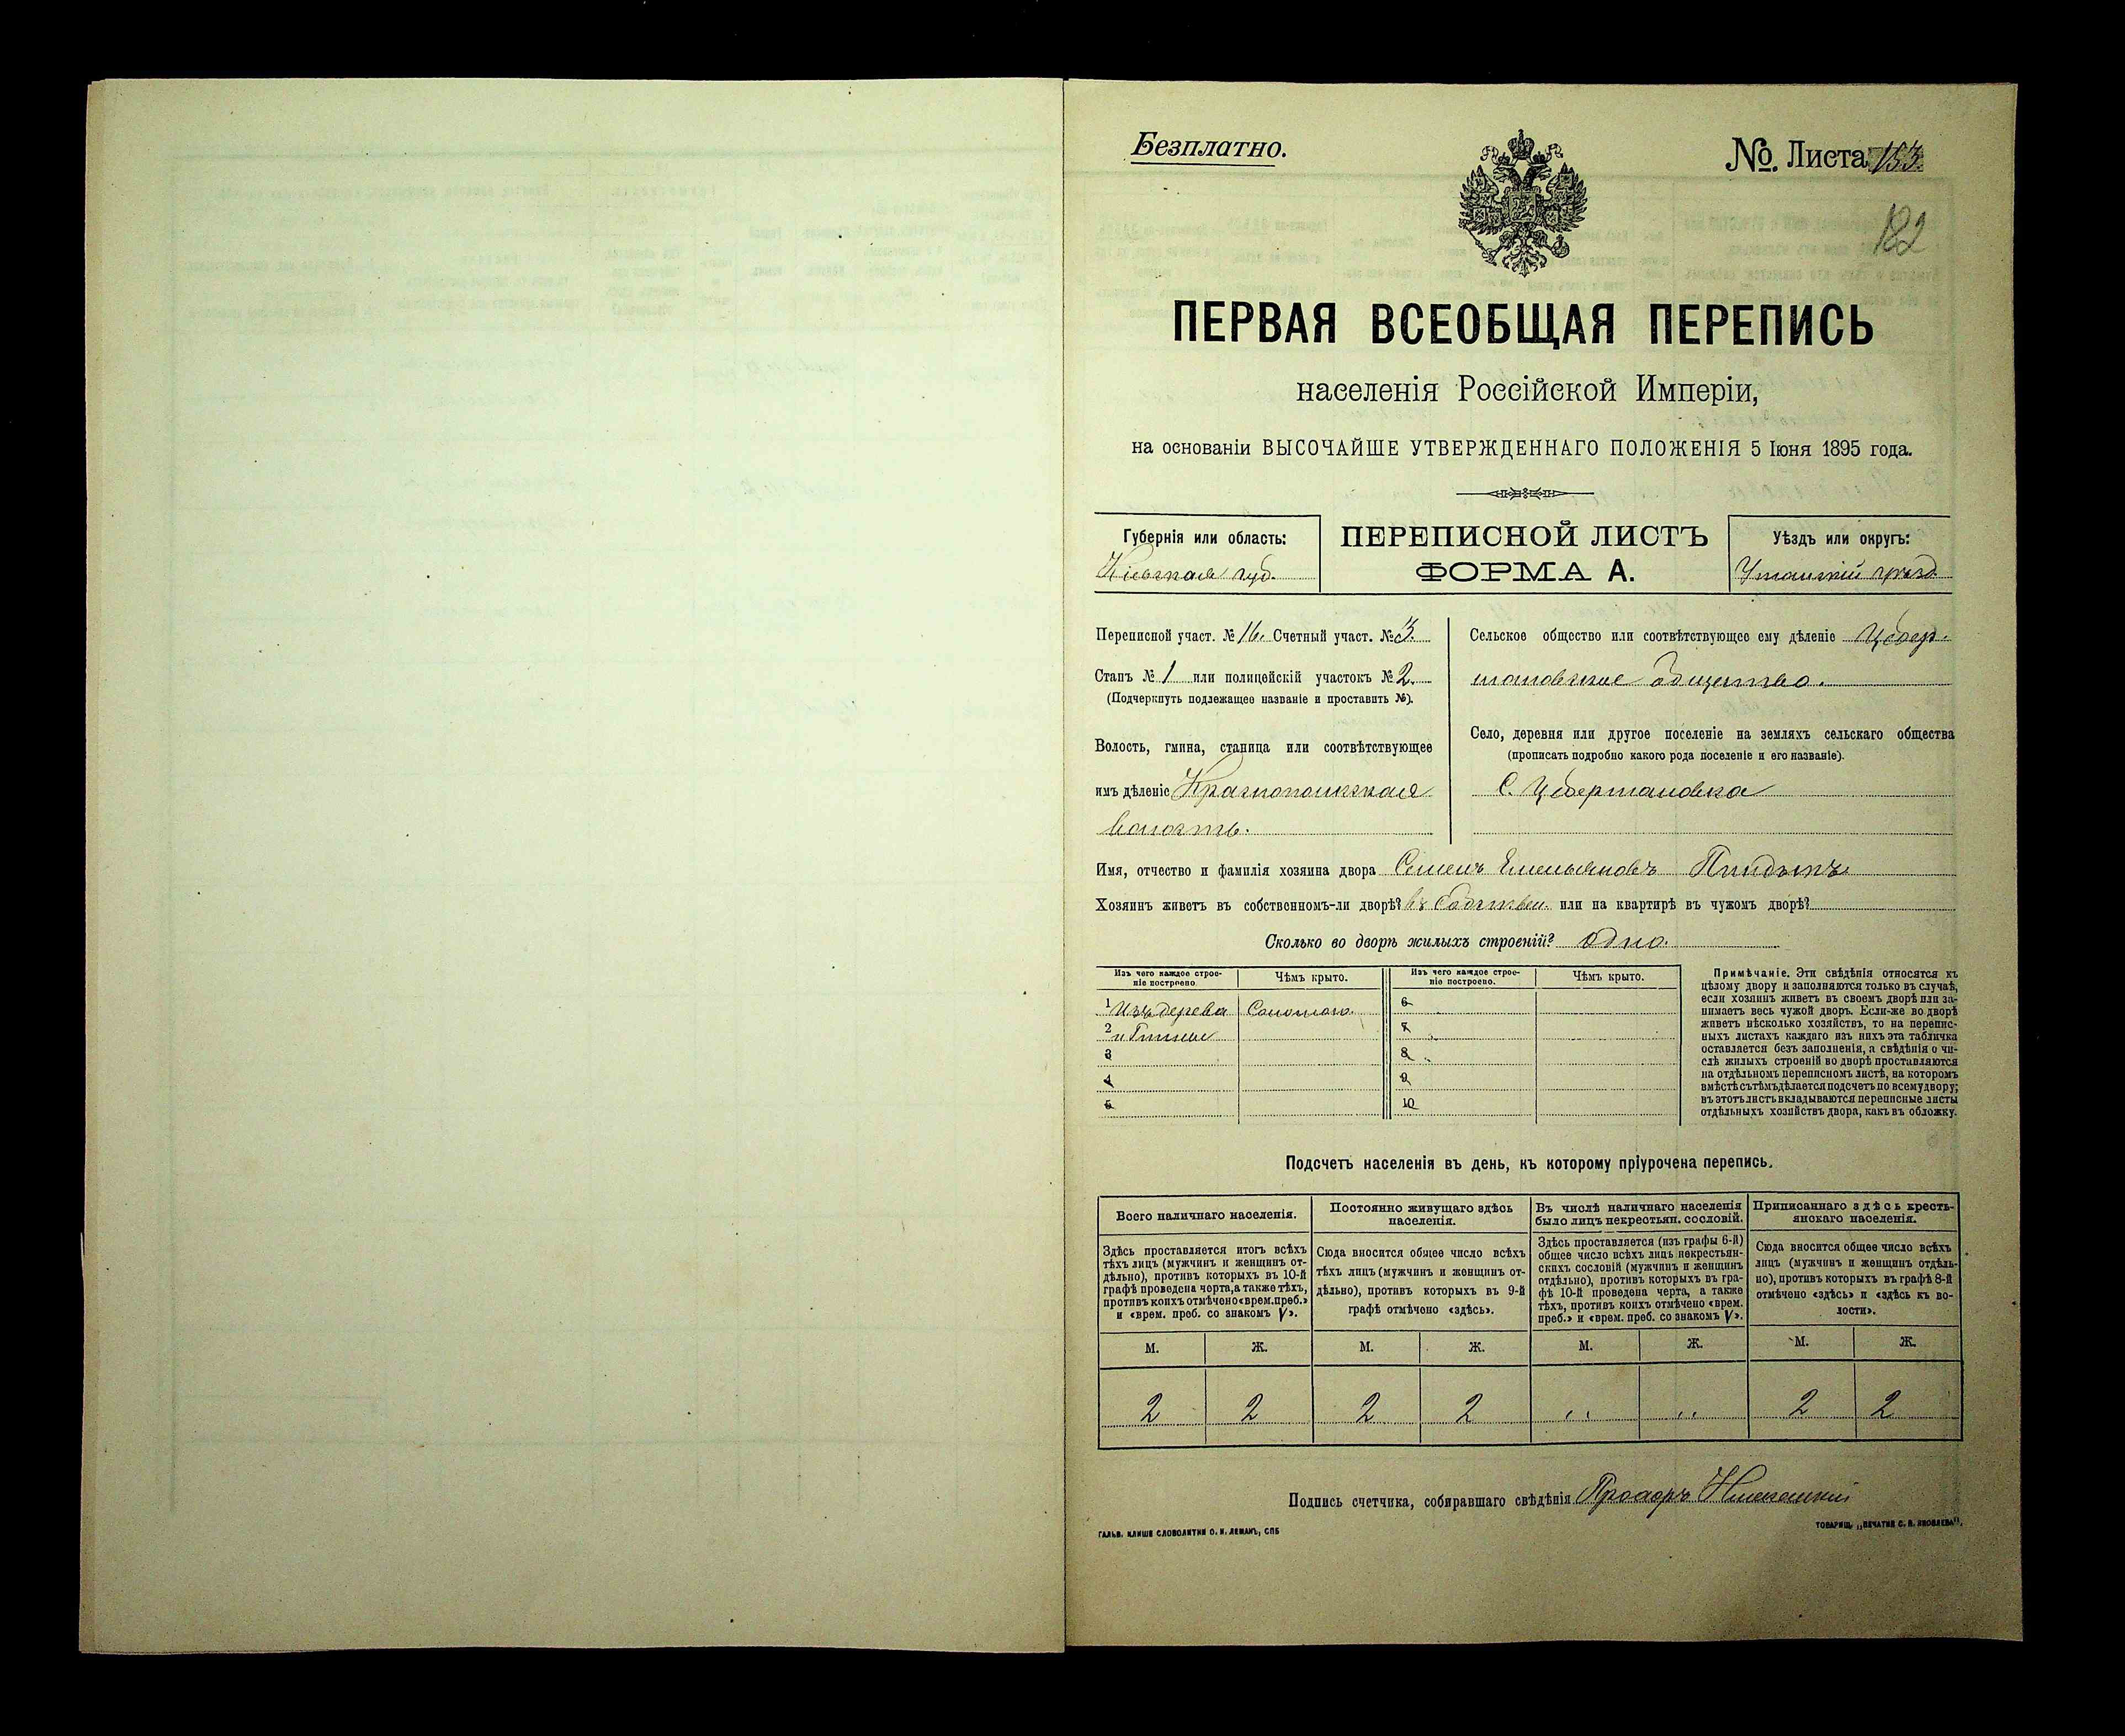 Безплатно.
№. Листа 153
182
ПЕРВАЯ ВСЕОБЩАЯ ПЕРЕПИСЬ
населенія Россійской Имперіи,
на основаніи ВЫСОЧАЙШЕ УТВЕРЖДЕННАГО ПОЛОЖЕНІЯ 5 Іюня 1895 года.
Губернія или область:
Кіевская губ.
ПЕРЕПИСНОЙ ЛИСТЪ
ФОРМА А.
Уѣздъ или округъ:
Уманскій уѣзд.
Переписной участ. № 16. Счетный участ. № 3.
Станъ № 1 или полицейскій участокъ № 2.
(Подчеркнуть подлежащее названіе и проставить №).
Волость, гмина, станица или соотвѣтствующее
имъ дѣленіе Краснопольская
волость.
Сельское общество или соотвѣтствующее ему дѣленіе Цебер-
мановское общество.
Село, деревня или другое поселеніе на земляхъ сельскаго общества
(прописать подробно какого рода поселеніе и его названіе).
С. Цебермановка
Имя, отчество и фамилія хозяина двора Семенъ Емельяновъ
Хозяинъ живетъ въ собственномъ-ли дворѣ? въ Собствен. или на квартирѣ въ чужомъ дворѣ?
Сколько во дворѣ жилыхъ строеній? Одно.
Изъ чего каждое строе-
ніе построено.
Чѣмъ крыто.
Изъ чего каждое строе-
ніе построено.
Чѣмъ крыто.
1 Изъ дерева Соломою. 6
2 и Глины 7
3 8
4 9
5 10
Примѣчаніе. Эти свѣдѣнія относятся къ
цѣлому двору и заполняются только въ случаѣ,
если хозяинъ живетъ въ своемъ дворѣ или за-
нимаетъ весь чужой дворъ. Если-же во дворѣ
живетъ нѣсколько хозяйствъ, то на перепис-
ныхъ листахъ каждаго изъ нихъ эта табличка
оставляется безъ заполненія, а свѣдѣнія о чи-
слѣ жилыхъ строеній во дворѣ проставляются
на отдѣльномъ переписномъ листѣ, на которомъ
вмѣстѣ съ тѣмъ дѣлается подсчетъ по всему двору;
въ этотъ листъ вкладываются переписные листы
отдѣльныхъ хозяйствъ двора, какъ въ обложку.
Подсчетъ населенія въ день, къ которому пріурочена перепись.
Всего наличнаго населенія.
Постоянно живущаго здѣсь
населенія.
Въ числѣ наличнаго населенія
было лицъ некрестьян. сословій.
Приписаннаго здѣсь кресть-
янскаго населенія.
Здѣсь проставляется итогъ всѣхъ
тѣхъ лицъ (мужчинъ и женщинъ от-
дѣльно), противъ которыхъ въ 10-й
графѣ проведена черта, а также тѣхъ,
противъ коихъ отмѣчено «врем. преб.»
и «врем. преб. со знакомъ V».
Сюда вносится общее число всѣхъ
тѣхъ лицъ (мужчинъ и женщинъ от-
дѣльно), противъ которыхъ въ 9-й
графѣ отмѣчено «здѣсь».
Здѣсь проставляется (изъ графы 6-й)
общее число всѣхъ лицъ некрестьян-
скихъ сословій (мужчинъ и женщинъ
отдѣльно), противъ которыхъ въ гра-
фѣ 10-й проведена черта, а также
тѣхъ, противъ коихъ отмѣчено «врем.
преб.» и «врем. преб. со знакомъ V».
Сюда вносится общее число всѣхъ
лицъ (мужчинъ и женщинъ отдѣль-
но), противъ которыхъ въ графѣ 8-й
отмѣчено «здѣсь» и «здѣсь къ во-
лости».
М. Ж. М. Ж. М. Ж. М. Ж.
2 2 2 2 „ „ 2 2
Подпись счетчика, собиравшаго свѣдѣнія Прохоръ
ГАЛЬВ. КЛИШЕ СЛОВОЛИТНИ О. И. ЛЕМАНЪ, СПБ
ТОВАРИЩ. „ПЕЧАТНЯ С. П. ЯКОВЛЕВА".